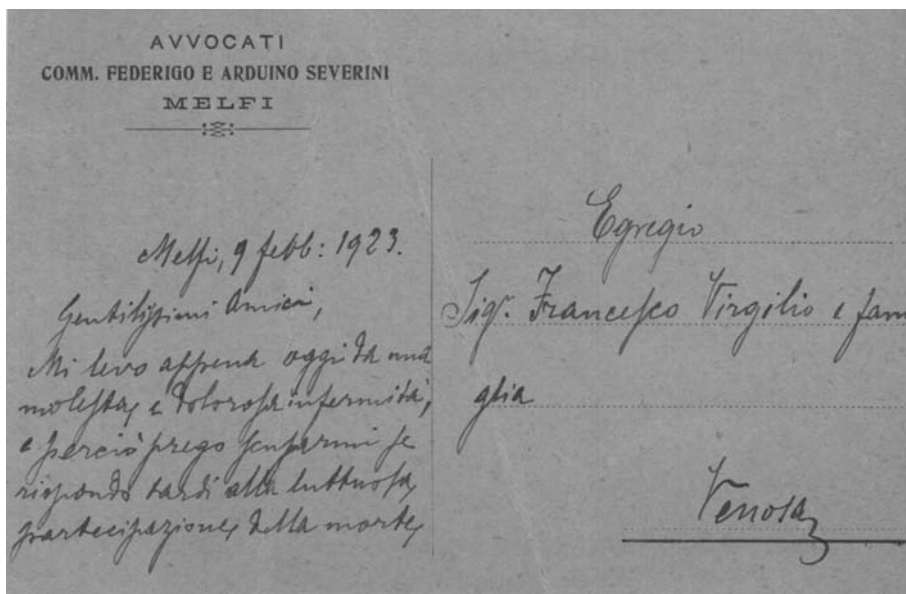 AVVOCATI
COMM. FEDERIGO E ARDUINO SEVERINI
MELFI
Melfi, 9 febb: 1923.
Gentilissimi Amici,
Mi levo appena oggi da una
molesta, e dolorosa infermità,
e perciò prego scusarmi se
rispondo tardi alla luttuosa
partecipazione, della morte,
Egregio
Sigr. Francesco Virgilio e fam
glia
Venosa